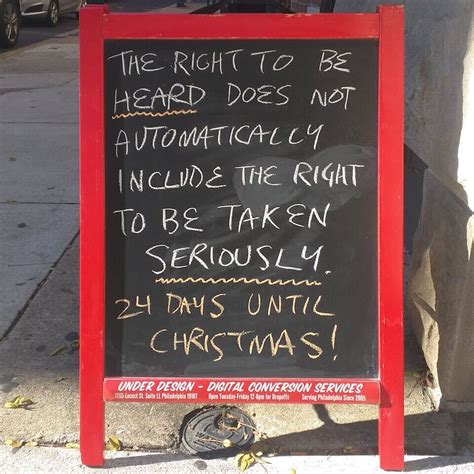 THE RIGHT TO BE
HEARD DOES NOT
AUTOMATICALLY
INCLUDE THE RIGHT
TO BE TAKEN
SERIOUSLY.
24 DAYS UNTIL
CHRISTMAS!
UNDER DESIGN - DIGITAL CONVERSION SERVICES
Open Tuesday-Friday 12-6pm for Dropoffs Serving Philadelphia Since 2005